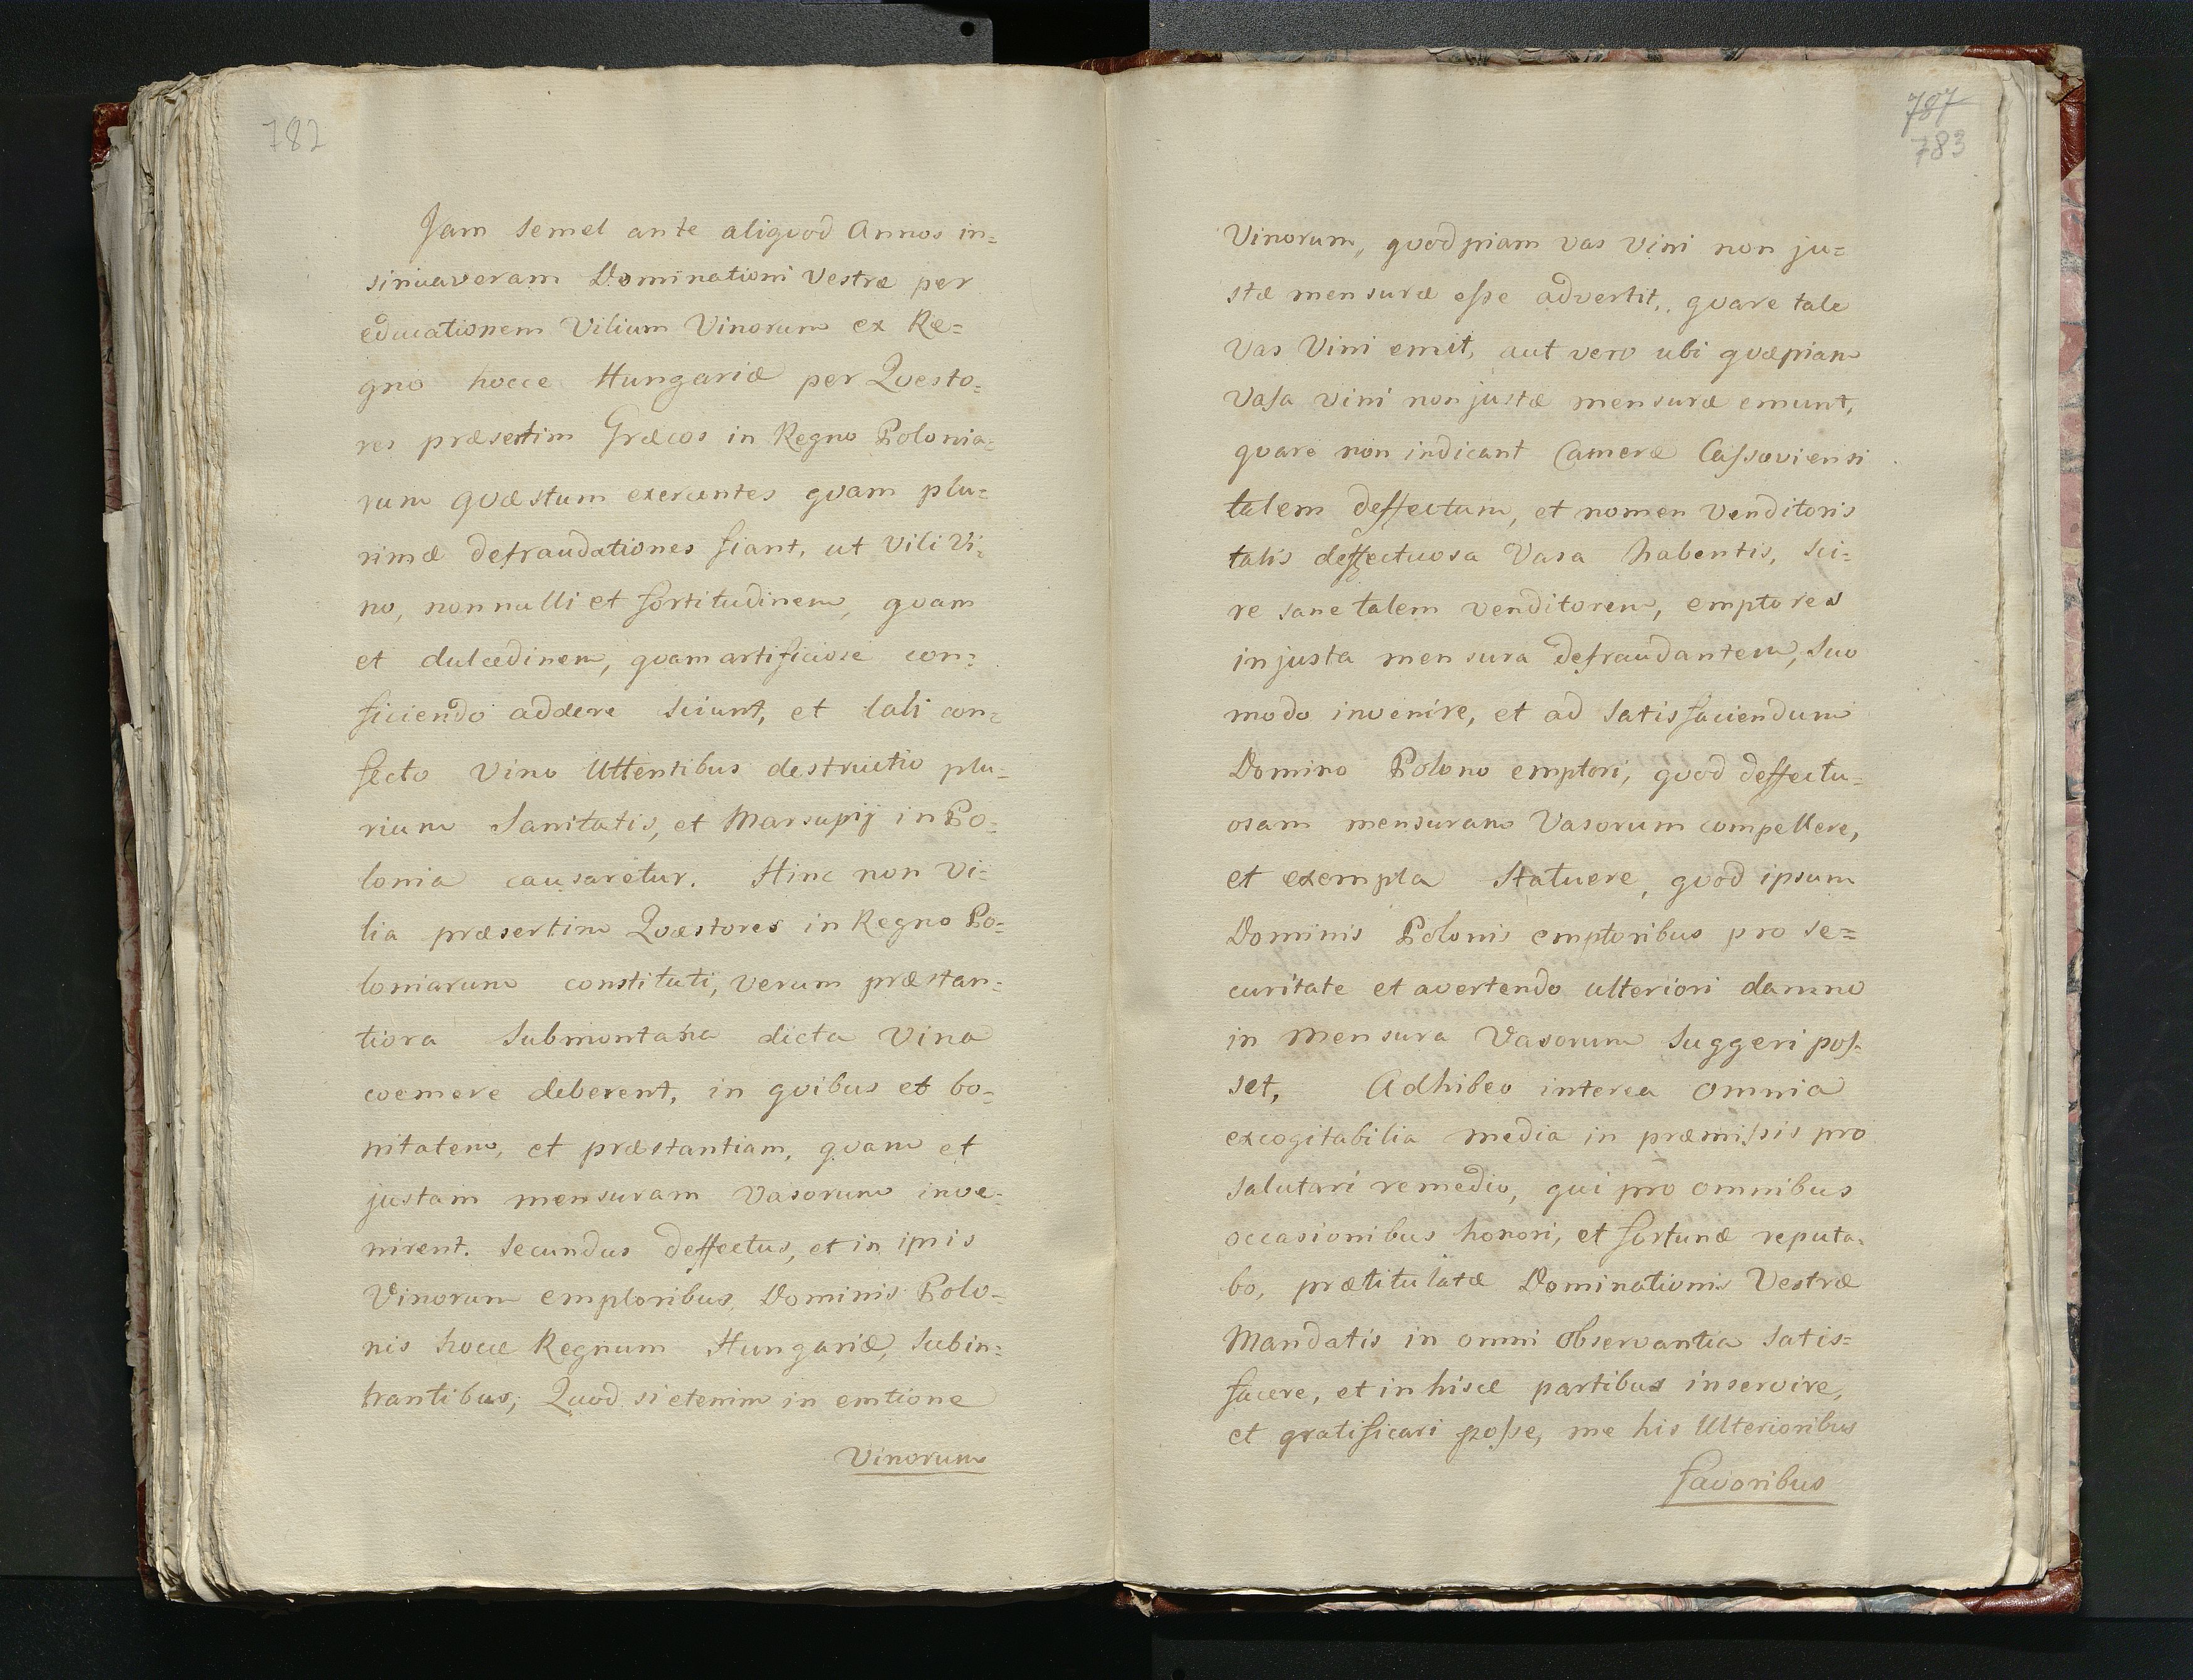 782
Jam semel ante aliqvod Annos in=
sinuaveram Dominationi Vestræ per
educationem Vilium Vinorum ex Re=
gno hocce Hungariæ per Qvesto=
res præsertim Græcos in Regno Polonia=
rum qvæstum exercentes qvam plu=
rimæ defraudationes fiant, ut Vili Vi=
no, nonnulli et fortitudinem, qvam
et dulcedinem, qvam artificiose con=
ficiendo addere sciunt, et tali con=
fecto Vino Uttentibus destructio plu=
rium Sanitatis, et Marsupij in Po=
lonia causaretur. Hinc non Vi=
lia præsertim Qvæstores in Regno Po=
loniarum constituti, verum præstan=
tiora Submontana dicta Vina
coemere deberent, in qvibus et bo=
nitatem, et præstantiam, qvam et
justam mensuram Vasorum inve=
nirent. Secundus deffectus, et in ipsis
Vinorum emptoribus, Dominis Polo=
nis hocce Regnum Hungariæ, Subin=
trantibus; Quod si etenim in emtione
Vinorum
787
783
Vinorum, qvodpiam vas vini non ju=
stæ mensuræ esse advertit, qvare tale
Vas Vini emit, aut vero ubi qvæpiam
Vasa vini non justæ mensuræ emunt,
qvare non indicant Cameræ Cassoviensi
talem deffectum, et nomen Venditoris
talis deffectuosa Vasa habentis, sci=
re sane talem venditorem, emptores
injusta mensura defraudantem, suo
modo invenire, et ad satisfaciendum
Domino Polono emptori, qvod deffectu=
osam mensuram Vasorum compellere,
et exempla Statuere, qvod ipsum
Dominis Polonis emptoribus pro se=
curitate et avertendo ulteriori damno
in mensura Vasorum suggeri pos=
set, Adhibeo interea omnia
excogitabilia media in præmissis pro
salutari remedio, qui pro omnibus
occasionibus honori, et fortunæ reputa=
bo, prætitulatæ Dominationis Vestræ
Mandatis in omni observantia satis=
facere, et in hisce partibus inservire,
et gratificari posse, me his Ulterioribus
favoribus